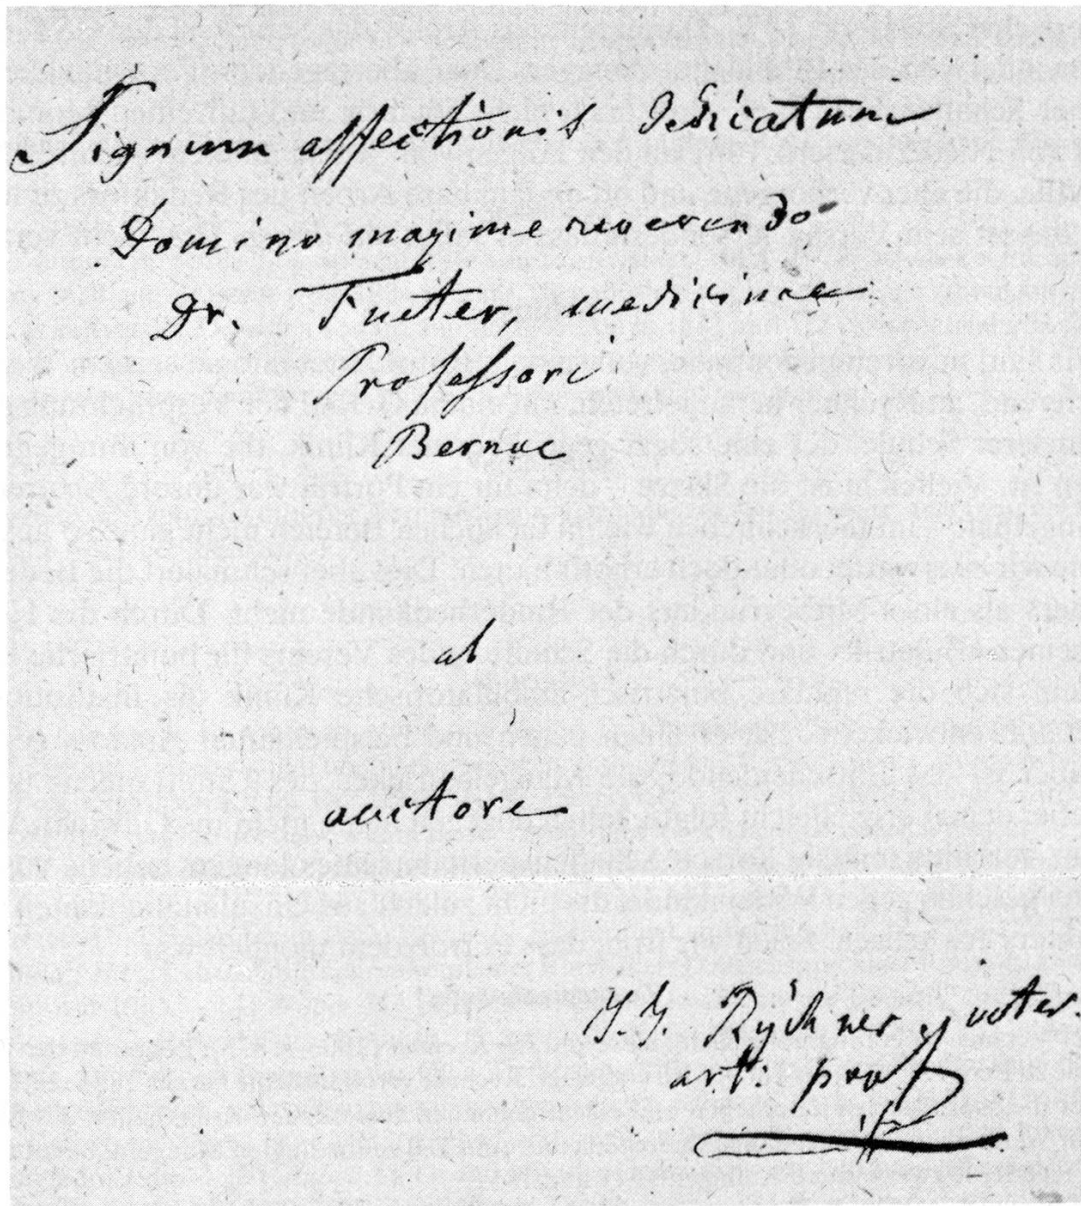 Signum affectionis dedicatum
Domino maxime reverendo
Dr. Fueter, medicinae
Professori
Bernae
ab
auctore
J. J. Rychner, veter.
art: prof